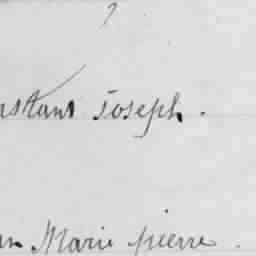 nstant Joseph.
an Marie pierre.